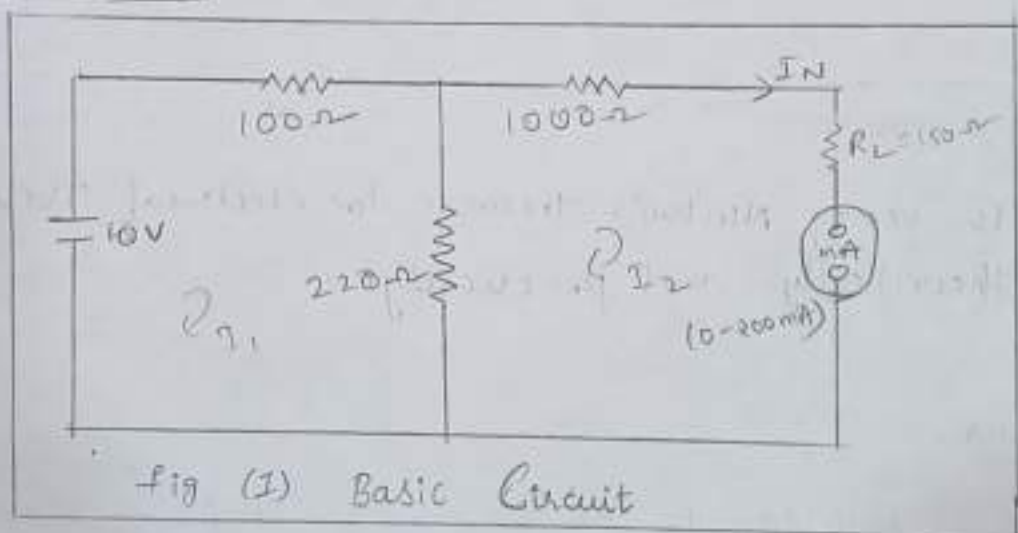 IN
100Ω
1000Ω
RL 150Ω
10V
220Ω
I2
mA
(0-200mA)
fig (1) Basic Circuit